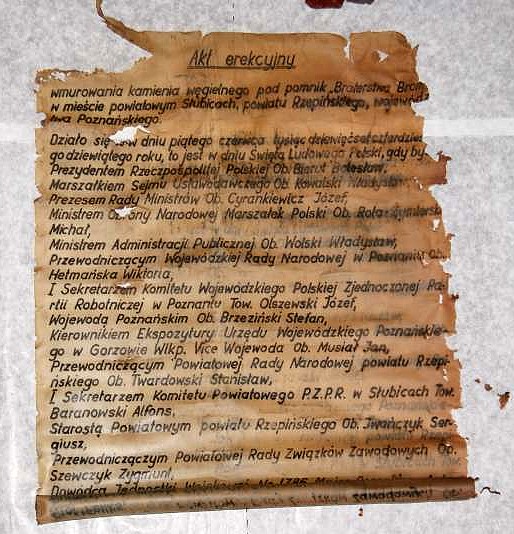 Akt erekcyjny
wmurowania kamienia węgielnego pod pomnik „Braterstwa Broni
w mieście powiatowym Słubicach, powiatu Rzepińskiego, wojewódz
twa Poznańskiego.
Działo się to w dniu piątego czerwca tysiąc dziewięćset czterdzies
go dziewiątego roku, to jest w dniu Święta Ludowego Polski, gdy by
Prezydentem Rzeczpospolitej Polskiej Ob. Bierut Bolesław,
Marszałkiem Sejmu Ustawodawczego Ob. Kowalski Władysław,
Prezesem Rady Ministrów Ob. Cyrankiewicz Józef,
Ministrem Obrony Narodowej Marszałek Polski Ob. Rola-Żymierski
Michał,
Ministrem Administracji Publicznej Ob. Wolski Władysław,
Przewodniczącym Wojewódzkiej Rady Narodowej w Poznaniu Ob.
Hetmańska Wiktoria,
I Sekretarzem Komitetu Wojewódzkiego Polskiej Zjednoczonej Pa-
rtii Robotniczej w Poznaniu Tow. Olszewski Józef,
Wojewodą Poznańskim Ob. Brzeziński Stefan,
Kierownikiem Ekspozytury Urzędu Wojewódzkiego Poznańskie-
go w Gorzowie Wlkp. Vice Wojewoda Ob. Musiał Jan,
Przewodniczącym Powiatowej Rady Narodowej powiatu Rzepi-
ńskiego Ob. Twardowski Stanisław,
I Sekretarzem Komitetu Powiatowego P.Z.P.R. w Słubicach Tow.
Baranowski Alfons,
Starostą Powiatowym powiatu Rzepińskiego Ob. Iwańczyk Ser-
giusz,
Przewodniczącym Powiatowej Rady Związków Zawodowych Ob.
Szewczyk Zygmunt,
Dowódcą Jednostki Wojskowej No